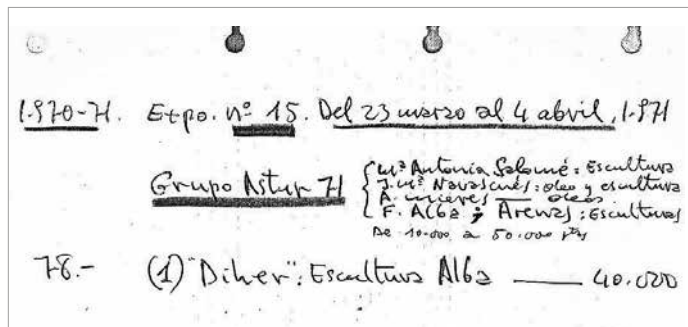 1.970-71. Expo. nº 15. Del 23 marzo al 4 abril, 1.971
Grupo Astur 71
Mª Antonia Salomé: Escultura
J. Mª Navascués: oleo y escultura
A. mieres — oleos
F. Alba y Arenas: Esculturas
De 10.000 a 50.000 ptas
78.- (1) "Diher": Escultura Alba — 40.000